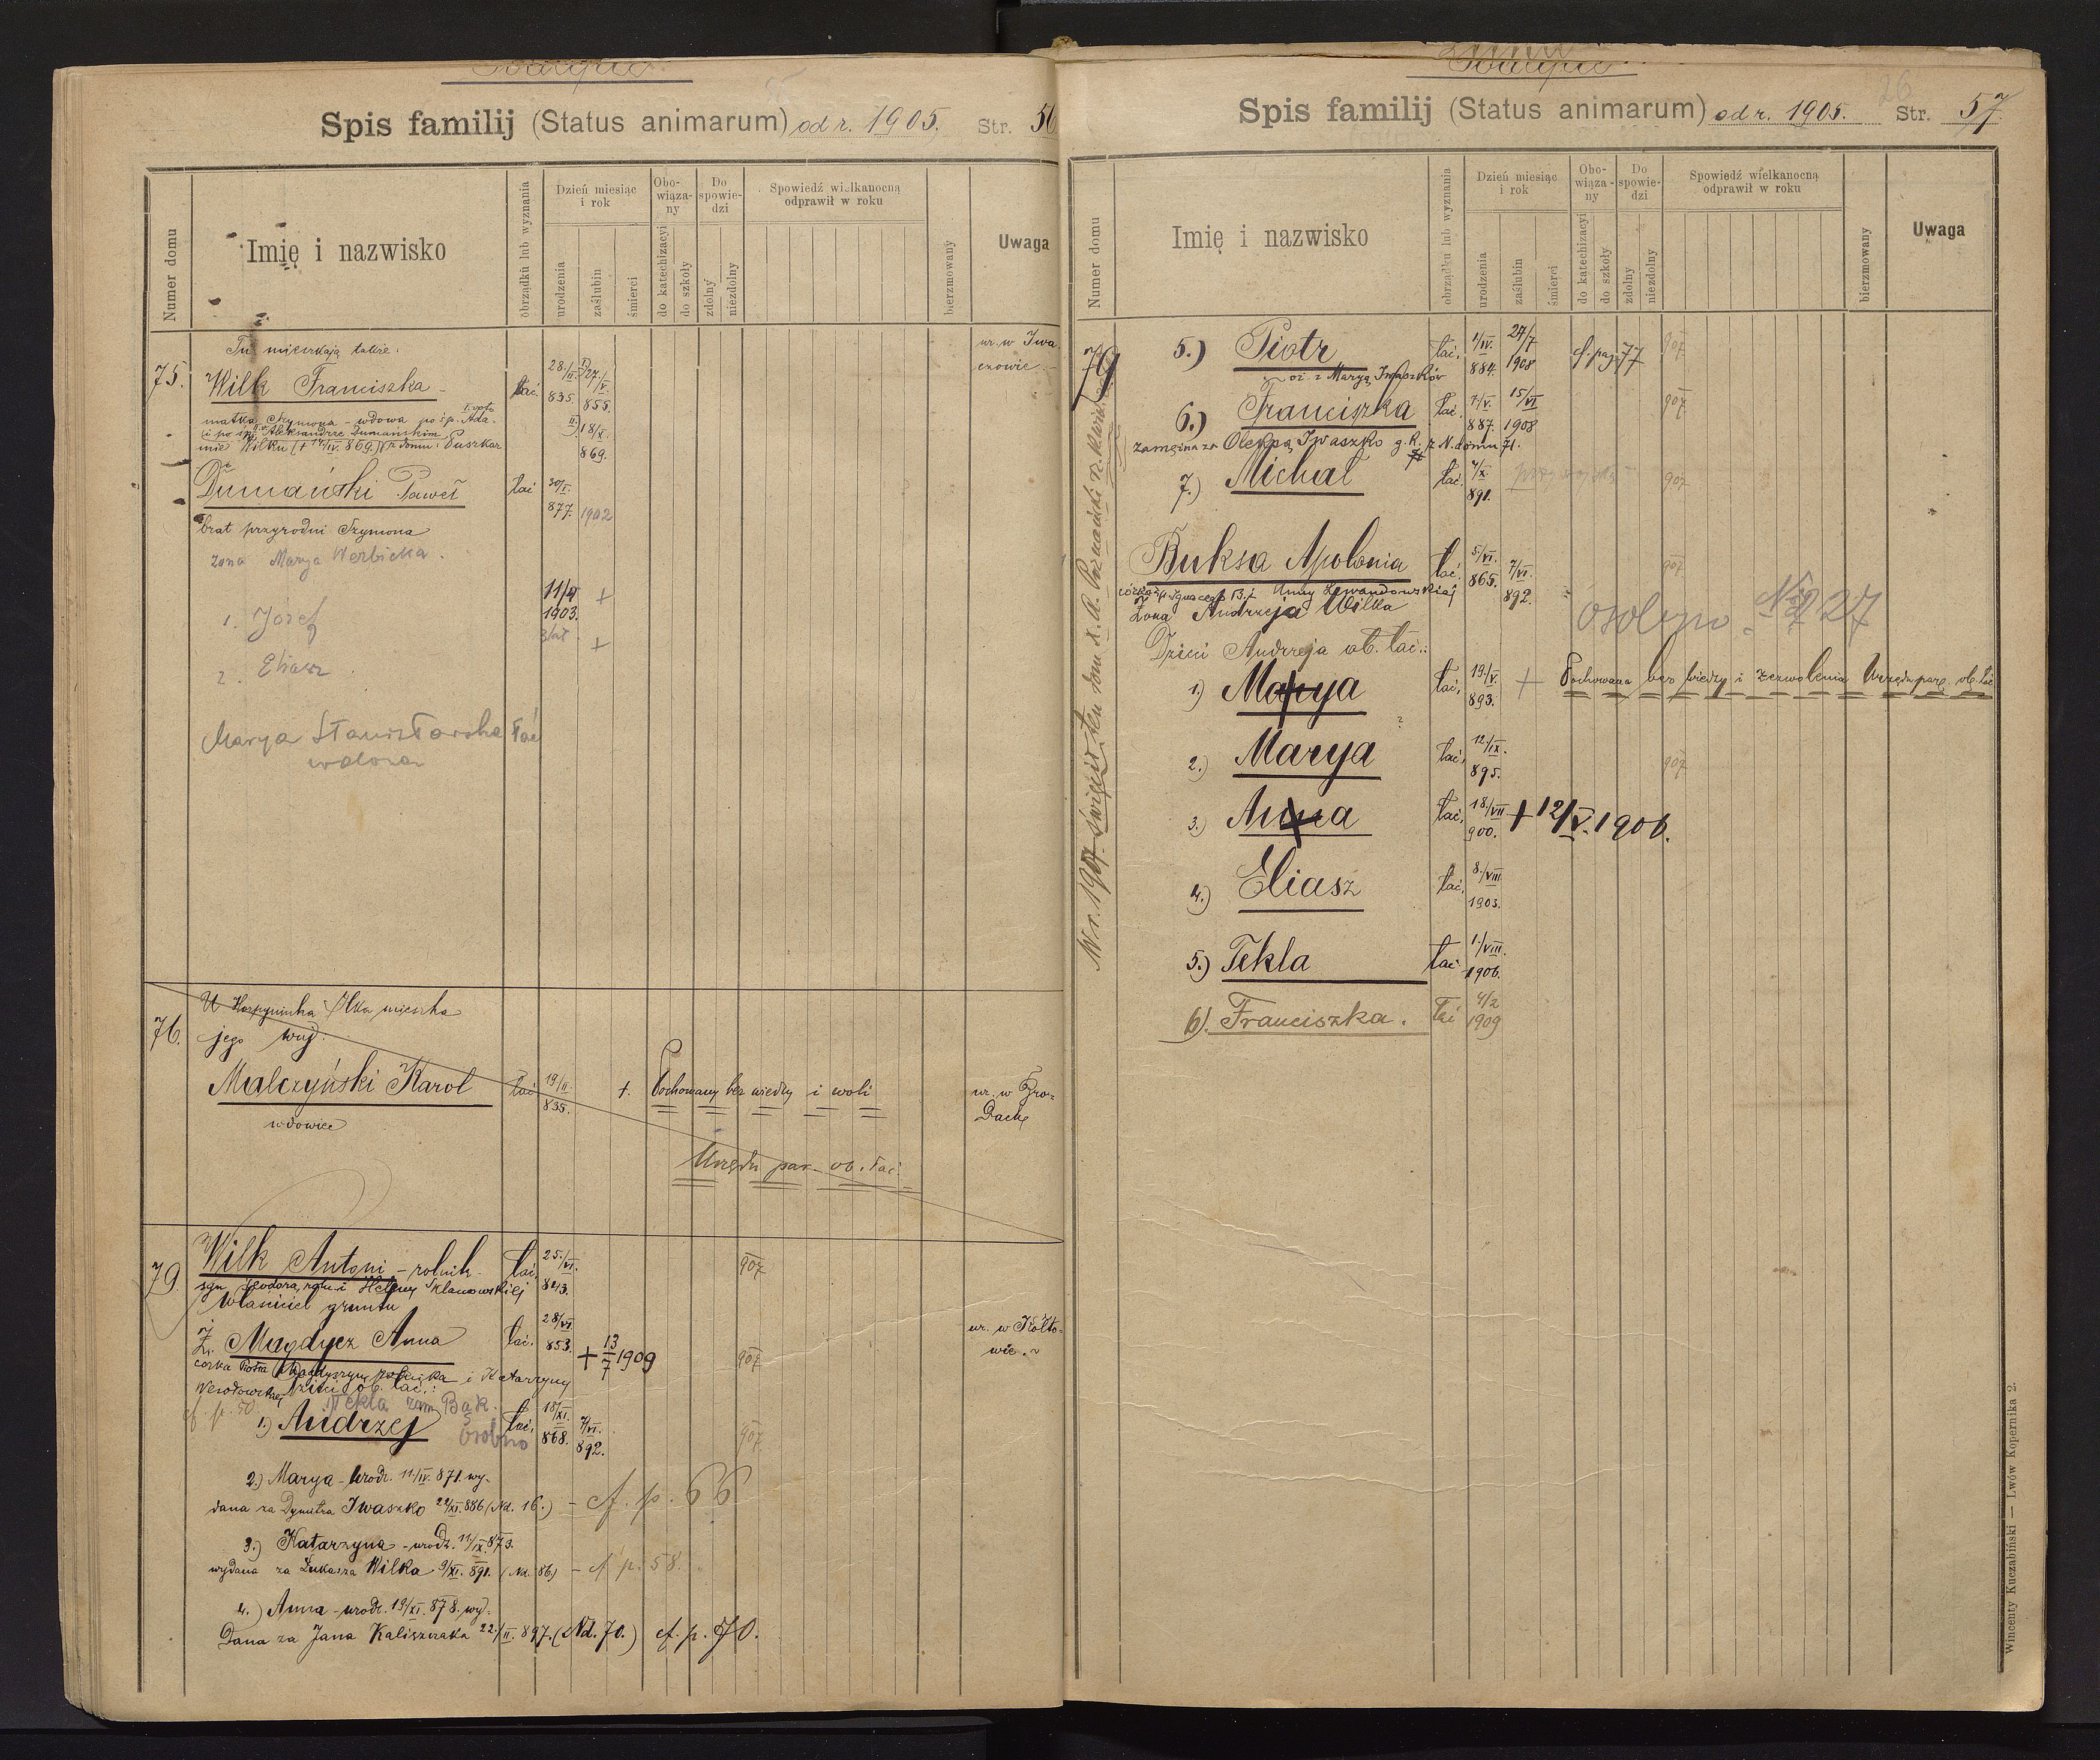 Spis familij (Status animarum) od r. 1905. Str. 56
Numer domu
Imię i nazwisko
obrządku lub wyznania
Dzień miesiąc i rok
urodzenia
zaślubin
śmierci
Obowiązany
do katechizacyi
do szkoły
Do spowiedzi
zdolny
niezdolny
Spowiedź wielkanocną odprawił w roku
bierzmowany
Uwaga
75.
Tu mieszkają także:
Wilk Franciszka
łać.
28/II. 835.
27/V. 855.
II) 18/X. 869.
ur. w Iwa
czowie.
matka Szymona - wdowa po śp. Ada-
i po śp. Aleksandrze Dumańskim
mie Wilku († 14/IV. 869.) z domu: Puszkar
Dumański Paweł
łać
30/I. 877.
1902
brat przyrodni Szymona
żona Marya Werbicka.
1. Józef
11/4 1903.
+
2. Eliasz
+
Marya Staniszławska łać
wdowa
76.
U Harpyniuka Ilka mieszka
jego wuj:
Malczyński Karol
łać
19/II. 835.
+. Pochowany bez wiedzy i woli
ur. w Gro-
wdowiec
Urzędu par. ob. łać.
79.
Wilk Antoni - rolnik
łać.
25./VI. 843.
907
syn Teodora, roln. i Heleny Klanowskiej
właściciel gruntu
Ż. Magdycz Anna
łać.
28/VI. 853.
+ 13/7 1909
907
ur. w Kołto-
wie.
córka Piotra Magdysza, rolnika i Katarzyny
Wesołowskiej Dzieci ob. łać.:
cf. p. 50. Tekla zam. Bąk.
1) Andrzej
osobno
łać.
18/XI. 868.
7/VI. 892.
907
2.) Marya - urodz. 11/IV. 871. wy-
dana za Dymitra Iwaszko 22/XI. 886 (Nd. 16.) - cf. p. 66
3.) Katarzyna - urodz. 11/IX. 873.
wydana za Łukasza Wilka 9/XI. 891. (Nd. 86) - cf p. 58.
4.) Anna - urodz. 19/XI. 878. wy-
dana za Jana Kaliszczaka 22./II. 897. (Nd. 70.) cf. p. 70.
26
Spis familij (Status animarum) od r. 1905. Str. 57.
Numer domu
Imię i nazwisko
obrządku lub wyznania
Dzień miesiąc i rok
urodzenia
zaślubin
śmierci
Obowiązany
do katechizacyi
do szkoły
Do spowiedzi
zdolny
niezdolny
Spowiedź wielkanocną odprawił w roku
bierzmowany
Uwaga
79
5.) Piotr
łać.
1/IV. 884.
27/7 1908
cf. pag. 77
907
oż. z Maryą Iwaszków
6.) Franciszka
łać.
7/V. 887.
15/VI 1908
907
zamężna za Oleksą Iwaszko g. k. z N. domu 71.
7.) Michał
łać.
4/X. 891.
907
Buksa Apolonia
łać.
5/VI. 865.
7/VI. 892.
907
córka Ignacego B. i Anny Lewandowskiej
Żona Andrzeja Wilka
osobno Nd 27
Dzieci Andrzeja ob. łać.:
1) Marya
łać.
19/V. 893.
+ Pochowana bez wiedzy i zezwolenia Urzędu par. ob. łać
2.) Marya
łać.
12./IX. 895.
907
3.) Anna
łać.
18/VII 900.
+ 12/V. 1906.
4.) Eliasz
łać.
8./VIII. 1903.
5.) Tekla
łać
1./VIII. 1906.
6). Franciszka.
łać
4/2 1909
W r. 1907. święcił ten dom X. A. Poznański
Wincenty Kuczabiński — Lwów Kopernika 2.